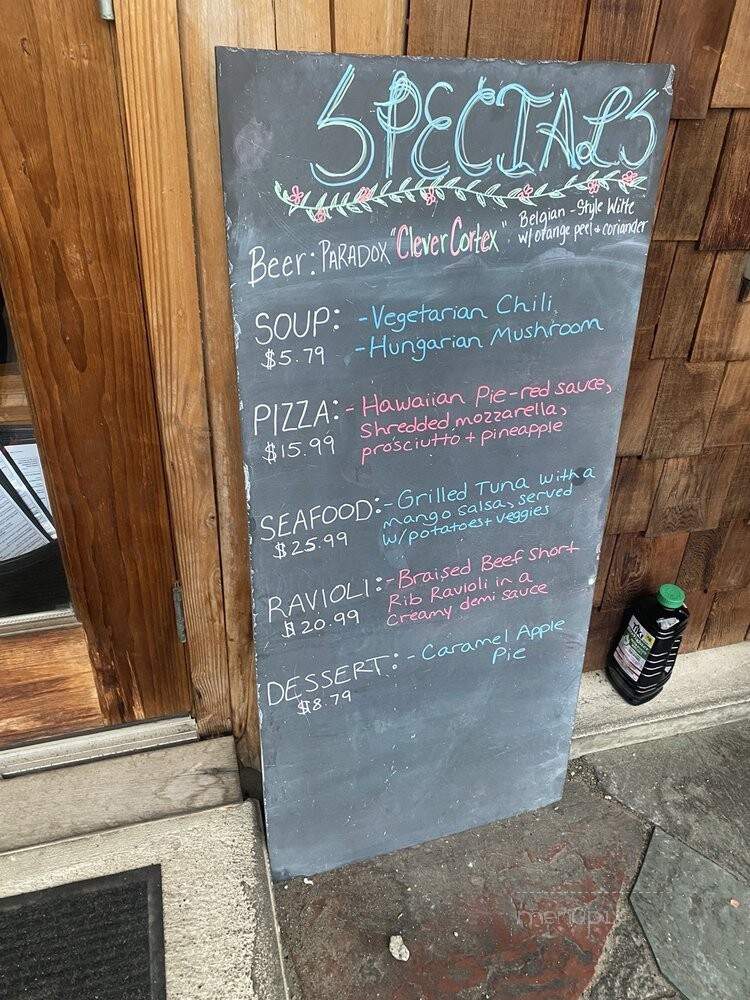 SPECIALS
Beer: PARADOX "Clever Cortex" Belgian-Style Witte
w/orange peel & coriander
SOUP: -Vegetarian Chili
$5.79 -Hungarian Mushroom
PIZZA: -Hawaiian Pie-red sauce,
$15.99 Shredded mozzarella,
prosciutto + pineapple
SEAFOOD: -Grilled Tuna with a
$25.99 mango salsa, served
w/potatoes + veggies
RAVIOLI: -Braised Beef Short
$20.99 Rib Ravioli in a
Creamy demi sauce
DESSERT: -Caramel Apple
$8.79 Pie
TIKI
menupix